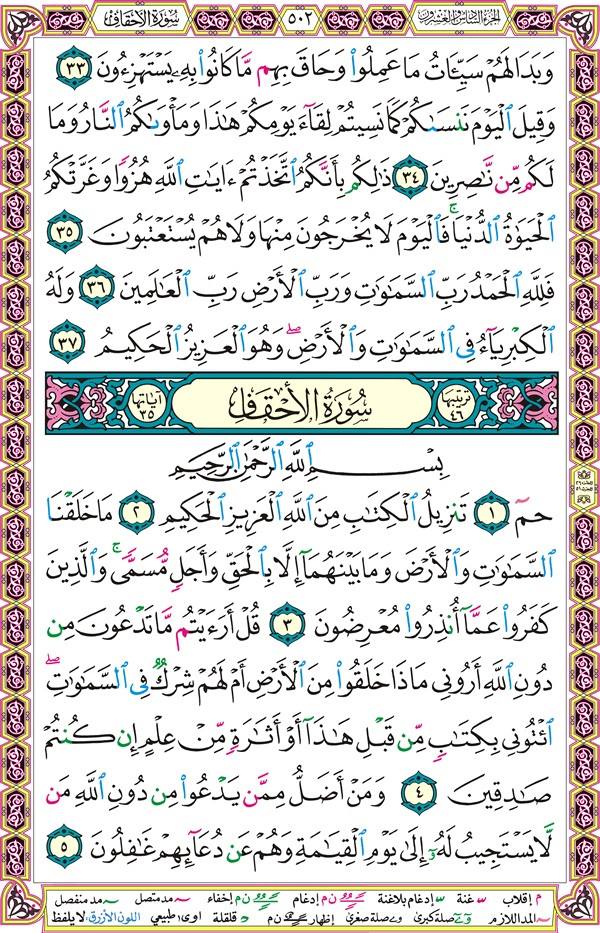 سُورَةُ الأَحْقَافِ
٥٠٢
الجزء السادس والعشرون
وَبَدَا لَهُمْ سَيِّئَاتُ مَا عَمِلُوا۟ وَحَاقَ بِهِم مَّا كَانُوا۟ بِهِۦ يَسْتَهْزِءُونَ ٣٣
وَقِيلَ ٱلْيَوْمَ نَنسَىٰكُمْ كَمَا نَسِيتُمْ لِقَآءَ يَوْمِكُمْ هَٰذَا وَمَأْوَىٰكُمُ ٱلنَّارُ وَمَا
لَكُم مِّن نَّٰصِرِينَ ٣٤ ذَٰلِكُم بِأَنَّكُمُ ٱتَّخَذْتُمْ ءَايَٰتِ ٱللَّهِ هُزُوًا وَغَرَّتْكُمُ
ٱلْحَيَوٰةُ ٱلدُّنْيَا ۚ فَٱلْيَوْمَ لَا يُخْرَجُونَ مِنْهَا وَلَا هُمْ يُسْتَعْتَبُونَ ٣٥
فَلِلَّهِ ٱلْحَمْدُ رَبِّ ٱلسَّمَٰوَٰتِ وَرَبِّ ٱلْأَرْضِ رَبِّ ٱلْعَٰلَمِينَ ٣٦ وَلَهُ
ٱلْكِبْرِيَآءُ فِى ٱلسَّمَٰوَٰتِ وَٱلْأَرْضِ ۖ وَهُوَ ٱلْعَزِيزُ ٱلْحَكِيمُ ٣٧
ترتيبها ٤٦ سُورَةُ الأَحْقَافِ آياتها ٣٥
بِسْمِ ٱللَّهِ ٱلرَّحْمَٰنِ ٱلرَّحِيمِ
حمٓ ١ تَنزِيلُ ٱلْكِتَٰبِ مِنَ ٱللَّهِ ٱلْعَزِيزِ ٱلْحَكِيمِ ٢ مَا خَلَقْنَا
ٱلسَّمَٰوَٰتِ وَٱلْأَرْضَ وَمَا بَيْنَهُمَآ إِلَّا بِٱلْحَقِّ وَأَجَلٍ مُّسَمًّى ۚ وَٱلَّذِينَ
كَفَرُوا۟ عَمَّآ أُنذِرُوا۟ مُعْرِضُونَ ٣ قُلْ أَرَءَيْتُم مَّا تَدْعُونَ مِن
دُونِ ٱللَّهِ أَرُونِى مَاذَا خَلَقُوا۟ مِنَ ٱلْأَرْضِ أَمْ لَهُمْ شِرْكٌ فِى ٱلسَّمَٰوَٰتِ ۖ
ٱئْتُونِى بِكِتَٰبٍ مِّن قَبْلِ هَٰذَآ أَوْ أَثَٰرَةٍ مِّنْ عِلْمٍ إِن كُنتُمْ
صَٰدِقِينَ ٤ وَمَنْ أَضَلُّ مِمَّن يَدْعُوا۟ مِن دُونِ ٱللَّهِ مَن
لَّا يَسْتَجِيبُ لَهُۥٓ إِلَىٰ يَوْمِ ٱلْقِيَٰمَةِ وَهُمْ عَن دُعَآئِهِمْ غَٰفِلُونَ ٥
م إقلاب س غنة س إدغام بلاغنة ن م إدغام ن م إخفاء ~ مد متصل ~ مد منفصل
~ المد اللازم صلة كبرى صلة صغرى إظهار ن م د قلقلة اوى طبيعي اللون الأزرق: لا يلفظ